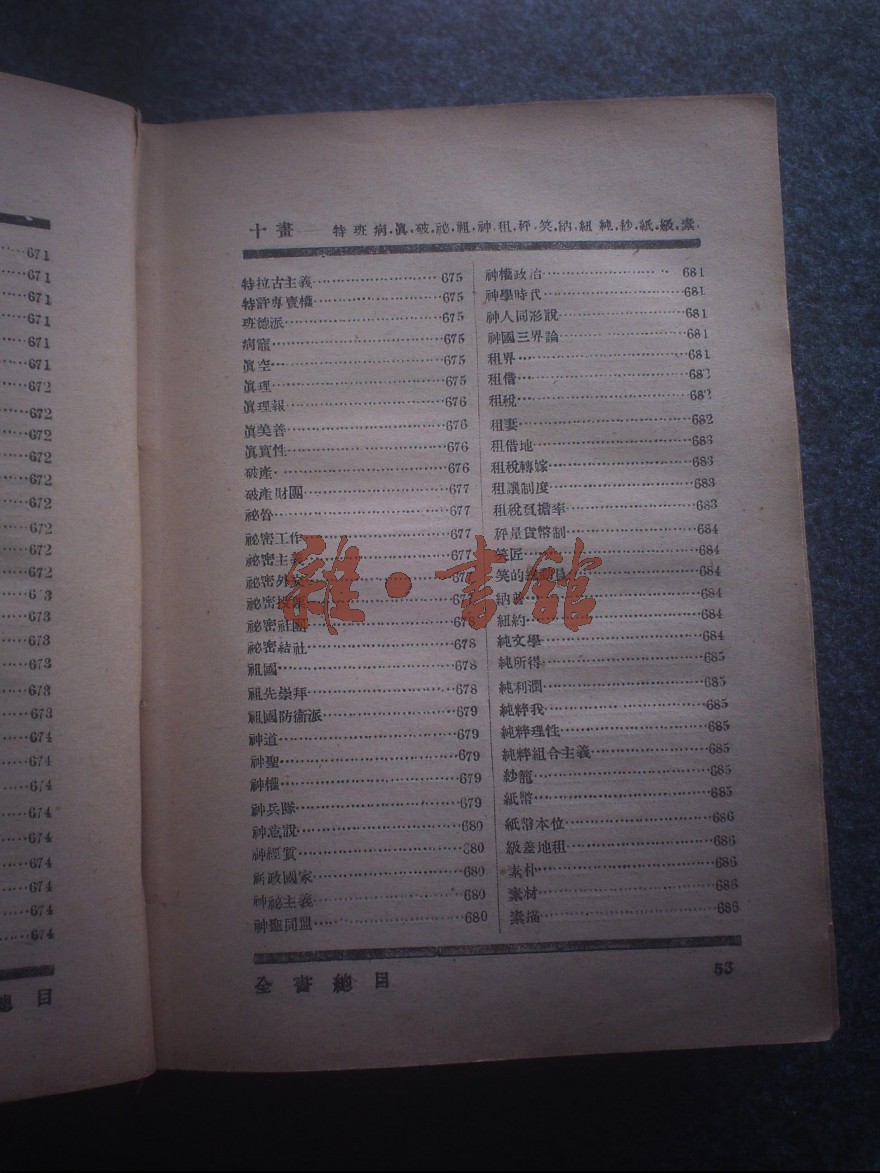 671
671
671
671
671
671
672
672
672
672
672
672
672
672
673
673
673
673
673
674
674
674
674
674
674
674
674
總目
十畫 特,班,病,眞,破,祕,祖,神,租,秤,笑,納,紐,純,紗,紙,級,素
特拉古主義 675
特許專賣權 675
班德派 675
病竈 675
眞空 675
眞理 675
眞理報 676
眞美善 676
眞實性 676
破產 676
破產財團 677
祕魯
祕密工作 677
祕密主義 677
祕密外交 677
祕密投票
祕密社團 678
祕密結社 678
祖國 678
祖先崇拜 678
祖國防衞派 679
神道 679
神聖 679
神權 679
神兵隊 679
神意說 680
神經質 680
神政國家 680
神祕主義 680
神聖同盟 680
神權政治 681
神學時代 681
神人同形說 681
神國三界論 681
租界 681
租借 682
租稅 682
租妻 682
租借地 683
租稅轉嫁 683
租讓制度 683
租稅負擔率 683
秤量貨幣制 684
笑匠 684
笑的 684
納 684
紐約 684
純文學 684
純所得 685
純利潤 685
純粹我 685
純粹理性 685
純粹組合主義 685
紗籠 685
紙幣 685
紙幣本位 686
級差地租 686
素朴 686
素材 686
素描 686
全書總目 53
雜·書館